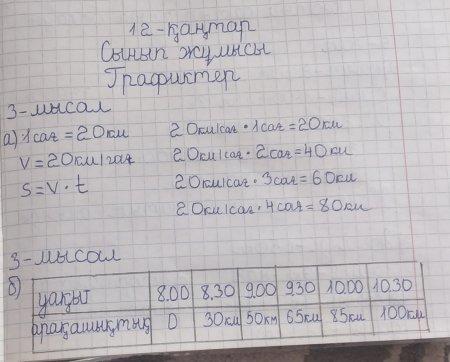 12-қаңтар
Сынып жұмысы
Графиктер
3-мысал
а) 1сағ = 20км 20км/сағ • 1сағ = 20км
V = 20км/сағ 20км/сағ • 2сағ = 40км
S = V • t 20км/сағ • 3сағ = 60км
20км/сағ • 4сағ = 80км
3-мысал
б)
уақыт 8.00 8.30 9.00 9.30 10.00 10.30
арақашықтық 0 30км 50км 65км 85км 100км